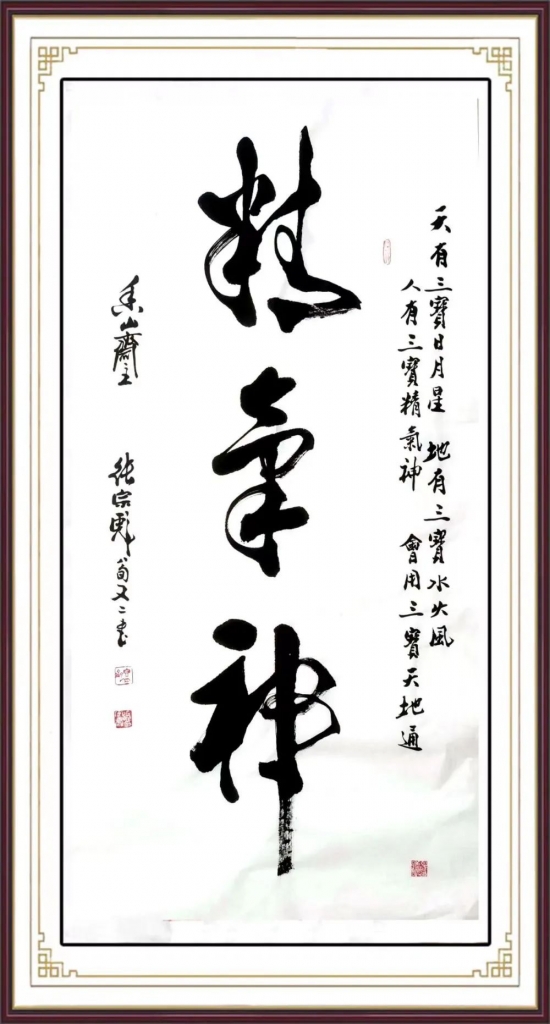 天有三寶日月星 地有三寶水火風
人有三寶精氣神 會用三寶天地通
精氣神
香山齋主 張宗彪 旬又二書